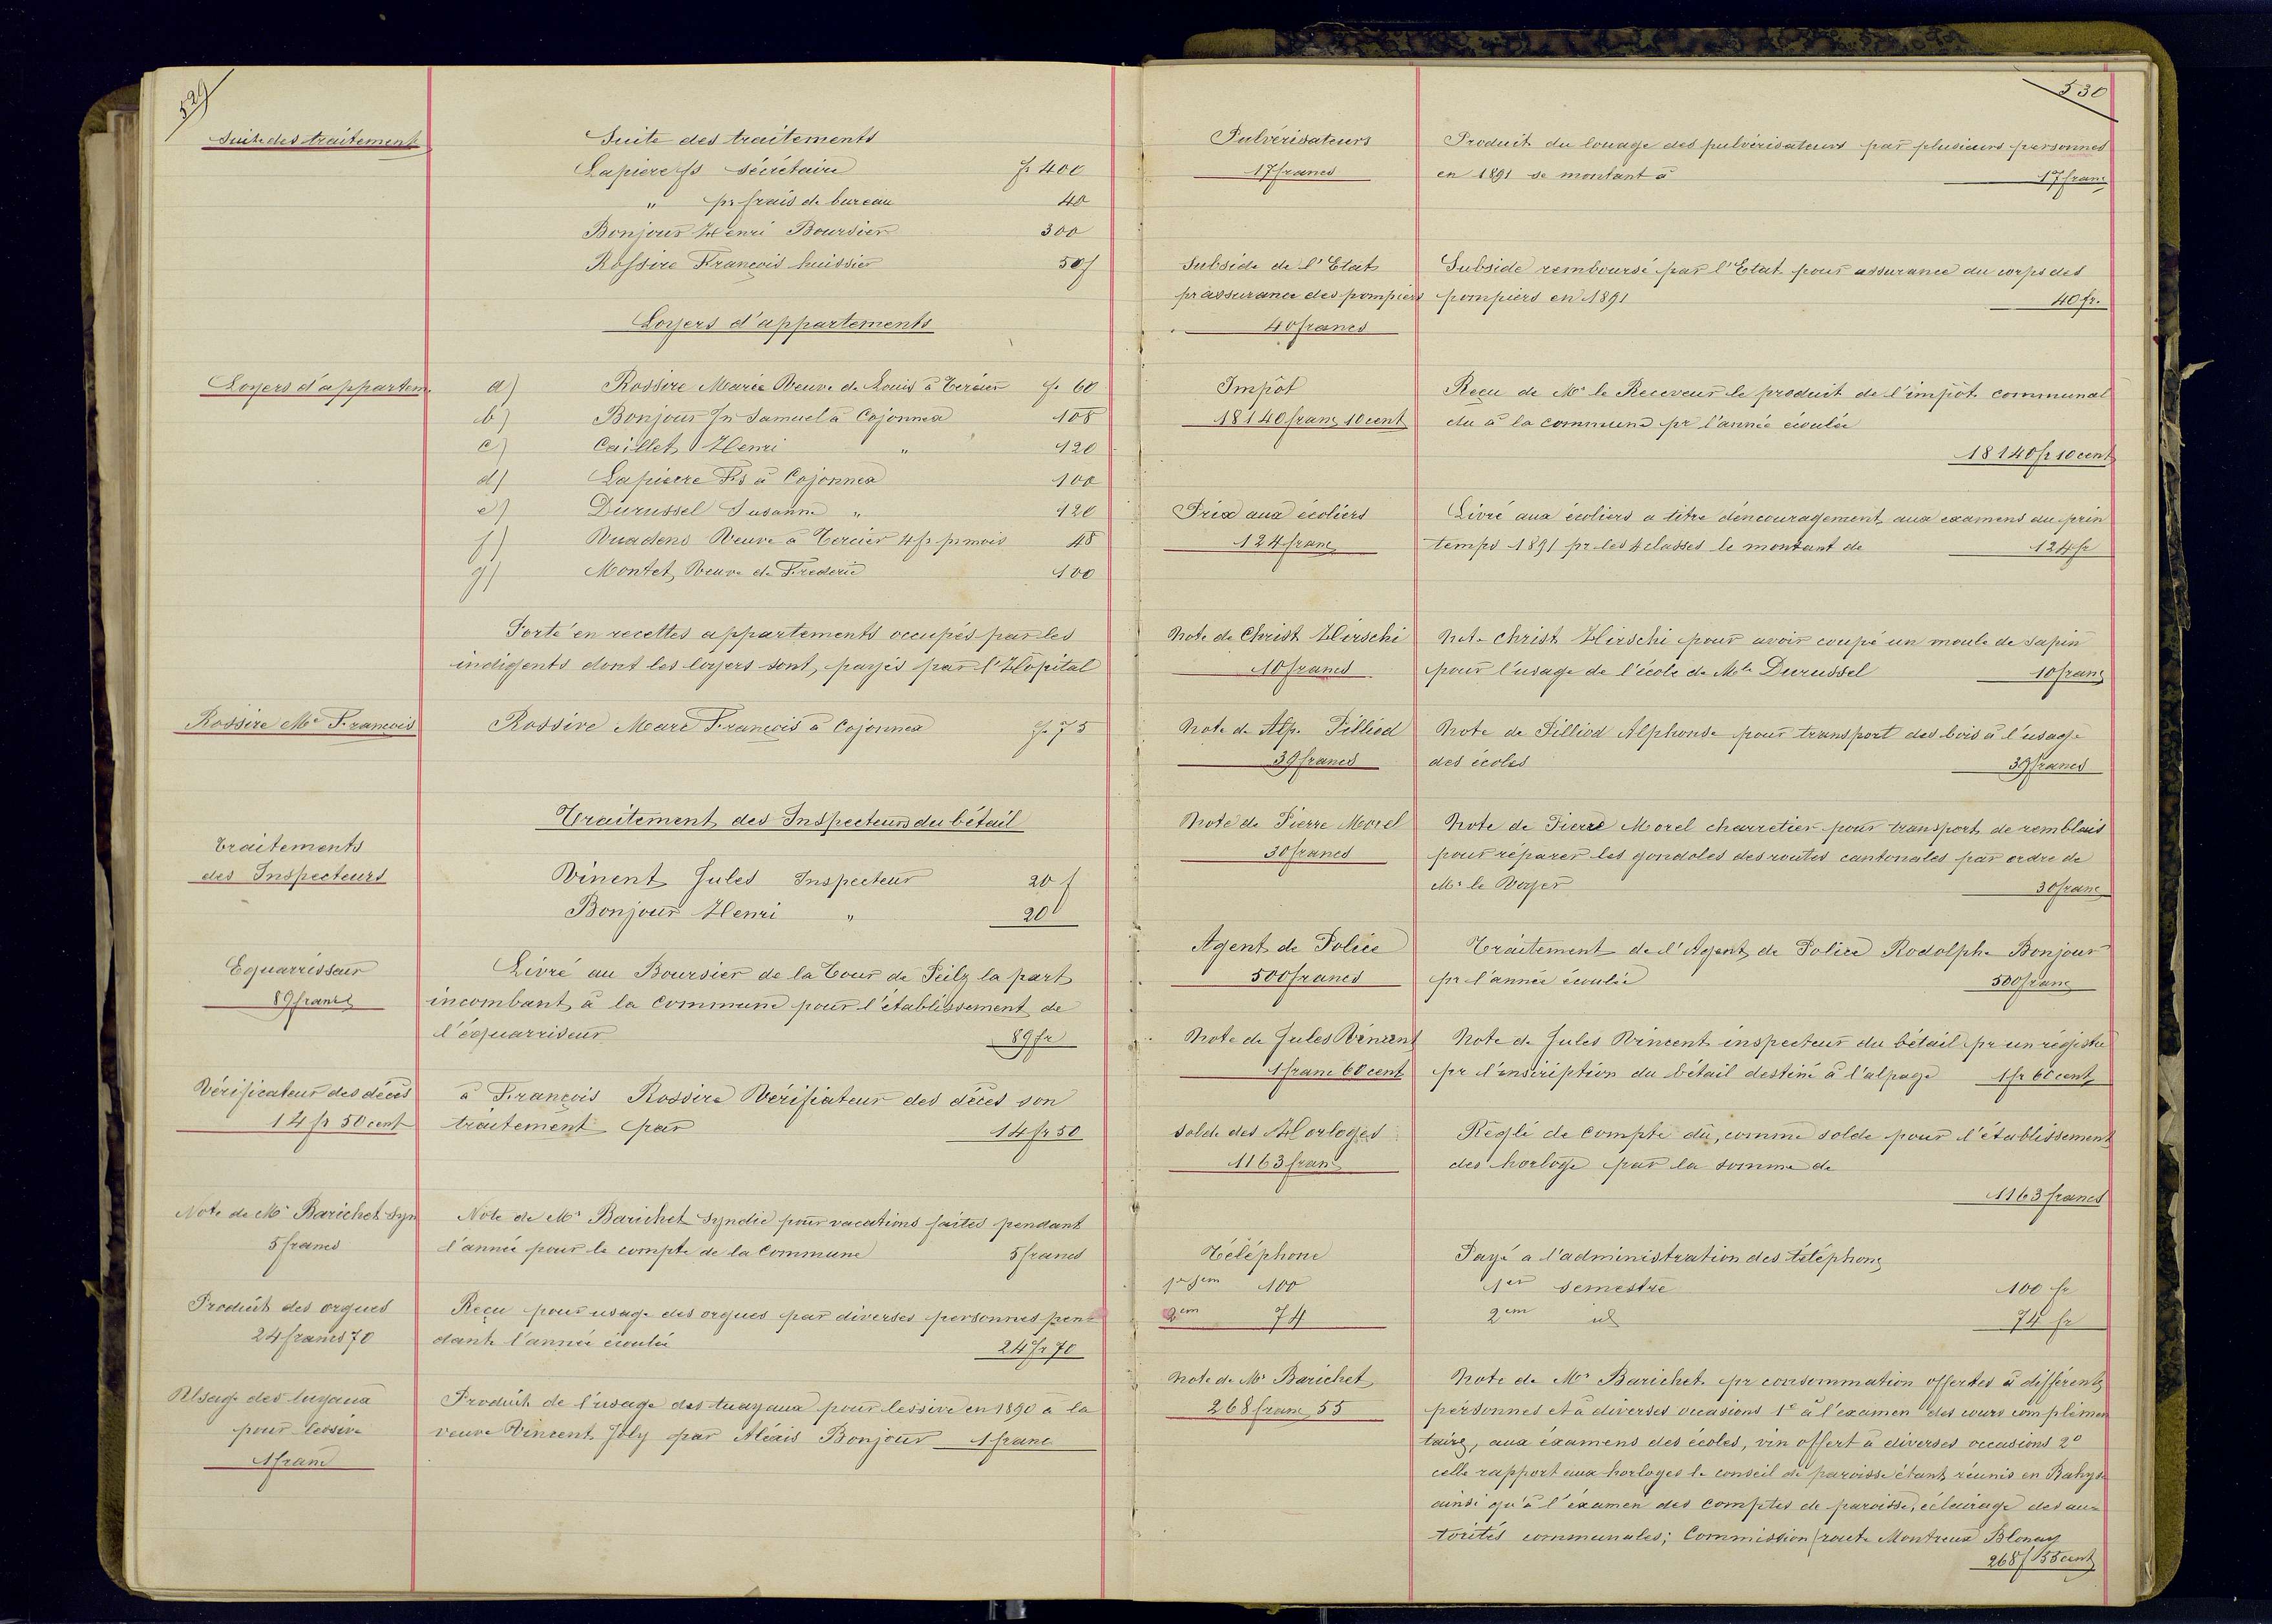 529
Suite des traitements
Suite des traitements
Lapierre fs sécrétaire fr 400
" pr frais de bureau 40
Bonjour Henri Boursier 300
Rossire François huissier 50 f
Loyers d'appartements
Loyers d'appartem.
a) Rossire Marie Veuve de Louis à Tercier fr 60
b) Bonjour Jn Samuel à Cojonnex 108
c) Caillet Henri " 120
d) Lapierre Fs à Cojonnex 100
e) Durussel Susanne " 120
f) Vuadens Veuve à Tercier 4 fr pr mois 48
g) Montet Veuve de Frederic 100
Porté en recettes appartements occupés par les
indigents dont les loyers sont, payés par l'Hôpital
Rossire Mc François
Rossire Marc François à Cojonnex fr 75
Traitement des Inspecteurs du bétail
Traitements
des Inspecteurs
Vincent Jules Inspecteur 20 f
Bonjour Henri " 20
Equarrisseur
89 francs
Livré au Boursier de la Tour de Peilz la part
incombant à la Commune pour l'établissement de
l'équarriseur 89 fr
Vérificateur des décès
14 fr 50 cent
à François Rossire Vérificateur des décès son
traitement par 14 fr 50
Note de Mr Barichet Syn
5 francs
Note de Mr Barichet Syndic pour vacations faites pendant
l'année pour le compte de la Commune 5 francs
Produit des orgues
24 francs 70
Reçu pour usage des orgues par diverses personnes pen=
dant l'année écoulée 24 fr 70
Usage des tuyaux
pour lessive
1 franc
Produit de l'usage des tuayaux pour lessive en 1890 à la
veuve Vincent Joly par Aléxis Bonjour 1 franc
530
Pulvérisateurs
17 francs
Produit du louage des pulvérisateurs par plusieurs personnes
en 1891 se montant à 17 franc
Subside de l'Etat
pr assurance des pompiers
40 francs
Subside remboursé par l'Etat pour assurance du corps des
pompiers en 1891 40 fr.
Impôt
18140 franc 10 cent
Reçu de Mr le Receveur le produit de l'impôt communal
du à la commune pr l'année écoulée
18140 fr 10 cent
Prix aux écoliers
124 franc
Livré aux écoliers a titre d'encouragement aux examens du prin
temps 1891 pr les 4 classes le montant de 124 fr
Note de Christ Hirschi
10 francs
Note Christ Hirschi pour avoir coupé un moule de sapin
pour l'usage de l'école de Mlle Durussel 10 franc
Note de Alp. Pilliod
39 francs
Note de Pilliod Alphonse pour transport des bois à l'usage
des écoles 39 francs
Note de Pierre Morel
30 francs
Note de Pierre Morel charretier pour transport de remblais
pour réparer les gondoles des routes cantonales par ordre de
Mr le Voyer 30 franc
Agent de Police
500 francs
Traitement de l'Agent de Police Rodolphe Bonjour
pr l'année écoulée 500 franc
Note de Jules Vincent
1 franc 60 cent
Note de Jules Vincent inspecteur du bétail pr un régistre
pr l'inscription du bétail destiné à l'alpage 1 fr 60 cent
Solde des Horloges
1163 franc
Réglé de compte dû, comme solde pour l'établissement
des horloge par la somme de
1163 francs
Téléphone
1er sem 100
2em 74
Payé a l'administration des téléphone
1er semestre 100 fr
2em id 74 fr
Note de Mr Barichet
268 franc 55
Note de Mr Barichet pr consommation offertes à différents
personnes et à diverses occasions 1° à l'examen des cours complémen
taire, aux éxamens des écoles, vin offert à diverses occasions 2°
celle rapport aux horloges le conseil de paroisse étant réunis en Bahyse
ainsi qu'à l'éxamen des comptes de paroisse, éclairage des au=
torités communales; Commission route Montreux Blonay
268 f 55 cent